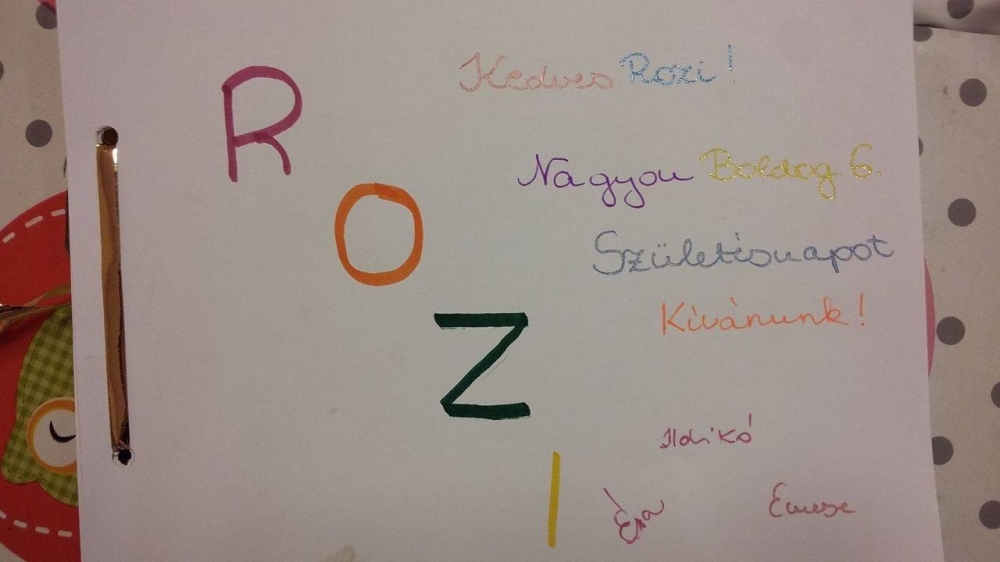 ROZI
Kedves Rozi!
Nagyon Boldog 6.
Születésnapot
Kívánunk!
Ildikó
Emese